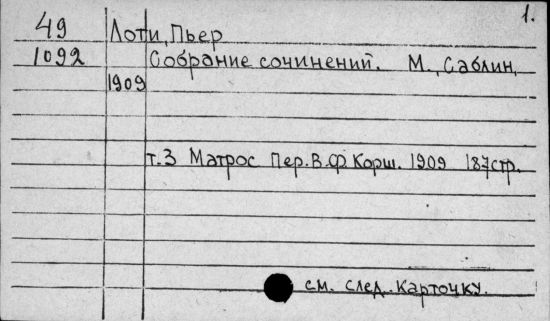 1.
49 Лоти, Пьер
1092 Собрание сочинений. М., Саблин,
1909
т.3 Матрос Пер. В.Ф. Корш. 1909 187стр.
см. след. карточку.